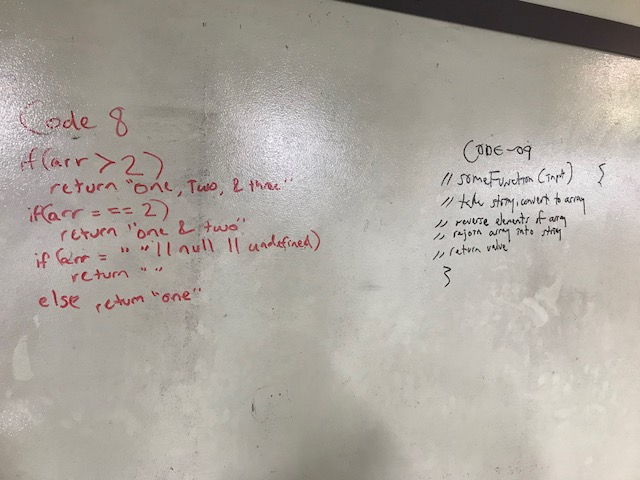 Code 8
if(arr > 2)
return "one, Two, & three"
if(arr = == 2)
return "one & two"
if (arr = " " || null || undefined)
return " "
else return "one"
CODE-09
// someFunction(input) {
// take string, convert to array
// reverse elements of array
// rejoin array into string
// return value
}